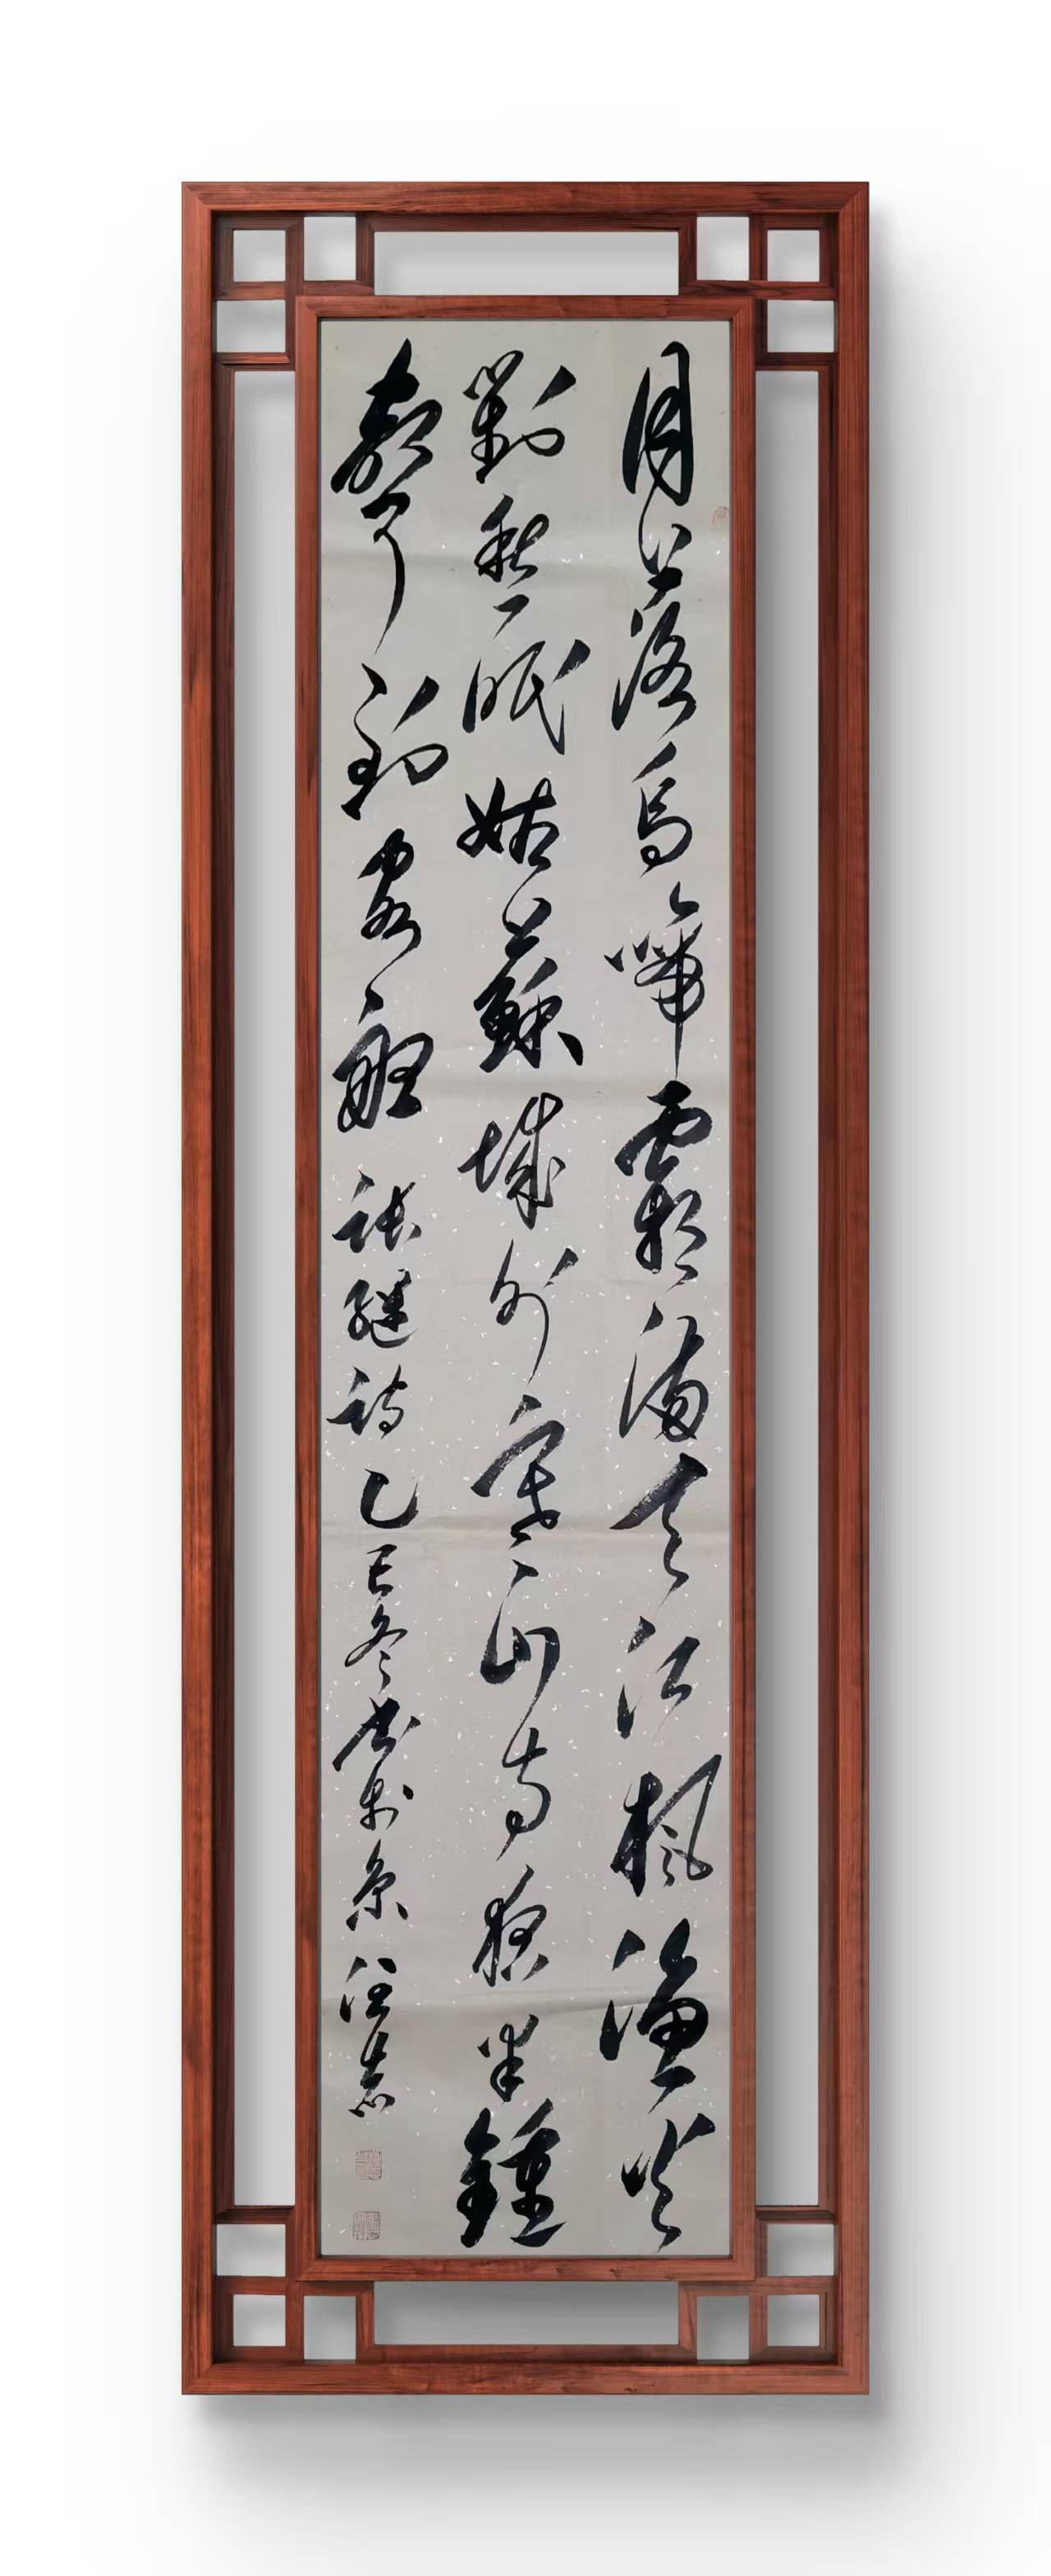 月落烏啼霜滿天江楓漁火
對愁眠姑蘇城外寒山寺夜半鍾
聲到客船 張継詩 乙巳冬書於京